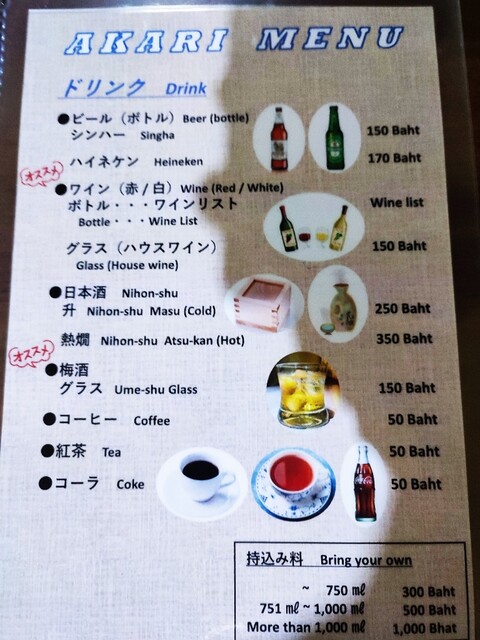 AKARI MENU
ドリンク Drink
●ビール（ボトル）Beer (bottle)
シンハー Singha 150 Baht
ハイネケン Heineken 170 Baht
オススメ
●ワイン（赤 / 白）Wine (Red / White)
ボトル・・・ワインリスト Wine list
Bottle・・・Wine List
グラス（ハウスワイン） 150 Baht
Glass (House wine)
●日本酒 Nihon-shu
升 Nihon-shu Masu (Cold) 250 Baht
熱燗 Nihon-shu Atsu-kan (Hot) 350 Baht
オススメ
●梅酒
グラス Ume-shu Glass 150 Baht
●コーヒー Coffee 50 Baht
●紅茶 Tea 50 Baht
●コーラ Coke 50 Baht
持込み料 Bring your own
~ 750 ㎖ 300 Baht
751 ㎖ ~ 1,000 ㎖ 500 Baht
More than 1,000 ㎖ 1,000 Bhat